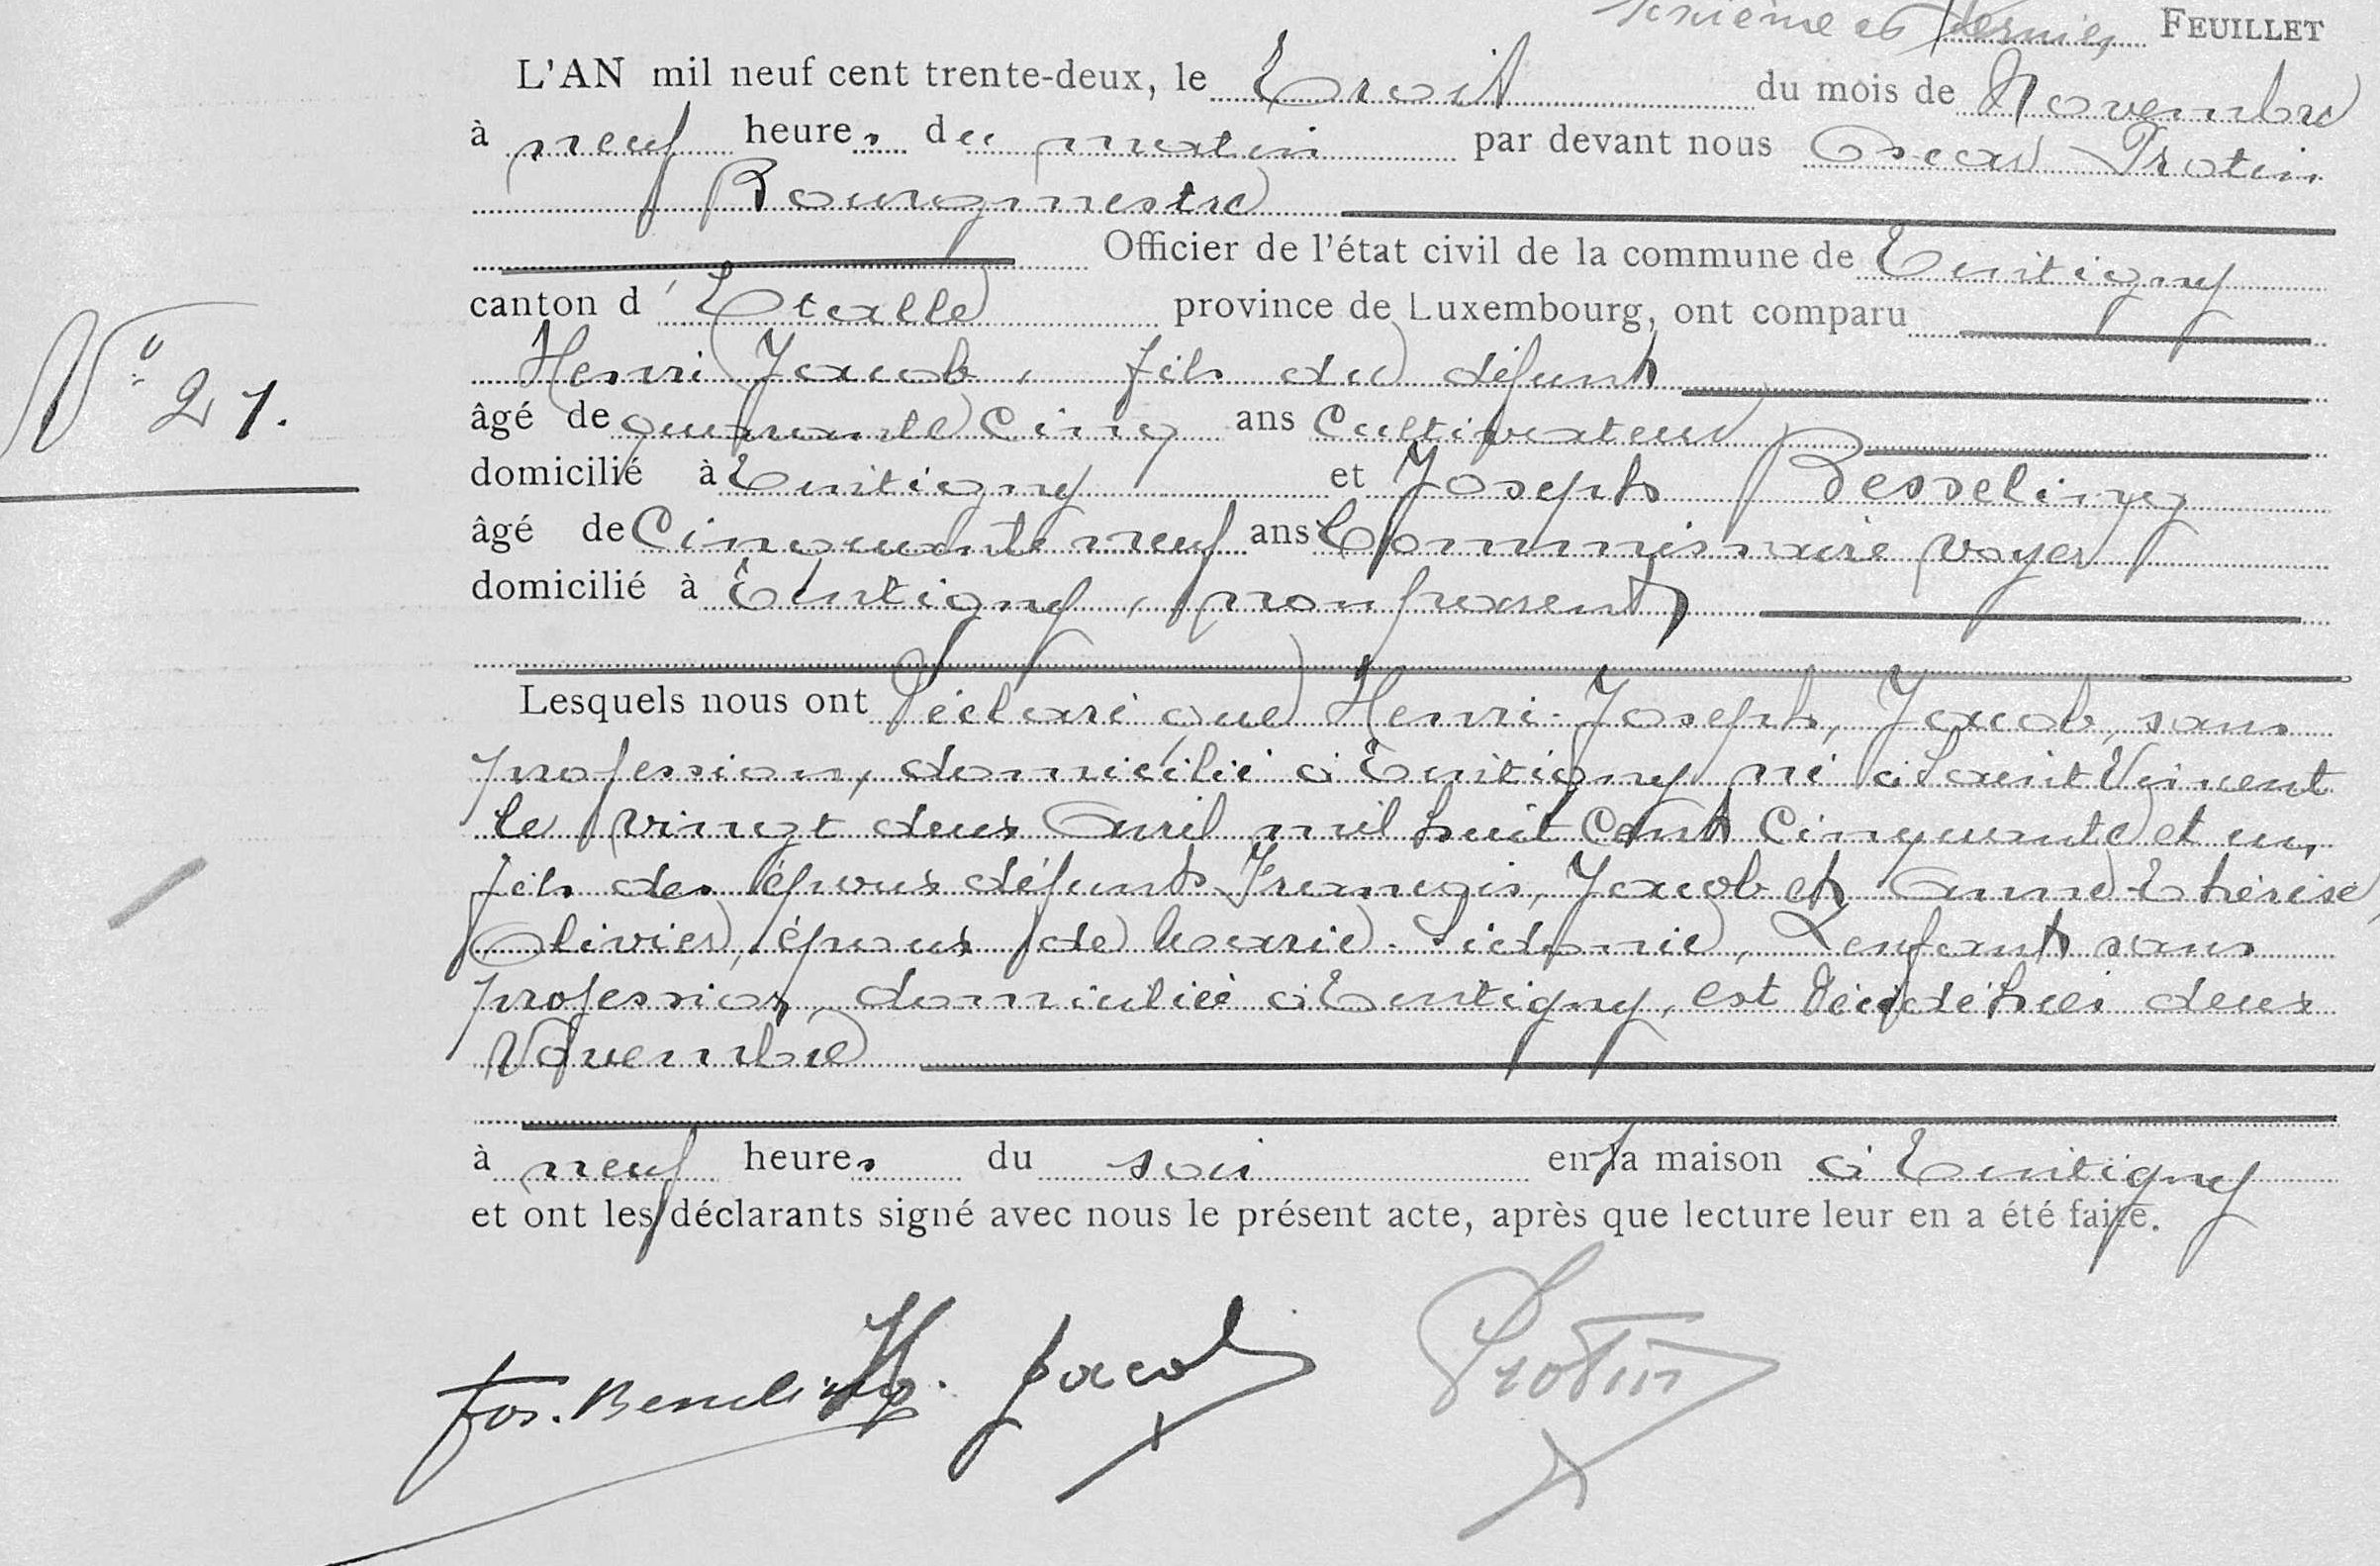 et dernier FEUILLET
L'AN mil neuf cent trente-deux, le Trois du mois de Novembre
à neuf heures du matin par devant nous Oscar Protin
Bourgmestre
Officier de l'état civil de la commune de Tintigny
canton d'Etalle province de Luxembourg, ont comparu
Henri Jacob, fils du défunt
N° 21.
âgé de quarante cinq ans Cultivateur
domicilié à Tintigny et Joseph Besseling
âgé de Cinquante neuf ans Commissaire voyer
domicilié à Tintigny, non parent
Lesquels nous ont Déclaré que Henri-Joseph, Jacob, sans
profession, domicilié à Tintigny né à Saint Vincent
le vingt deux Avril mil huit Cent Cinquante et un,
fils des époux défunts François, Jacob et Anne-Thérèse
Olivier, époux de Marie-Sidonie, Lenfant sans
profession domiciliée à Tintigny, est décédé hier deux
Novembre
à neuf heures du soir en sa maison à Tintigny
et ont les déclarants signé avec nous le présent acte, après que lecture leur en a été faite.
Jos. Besseling H. Jacob Protin